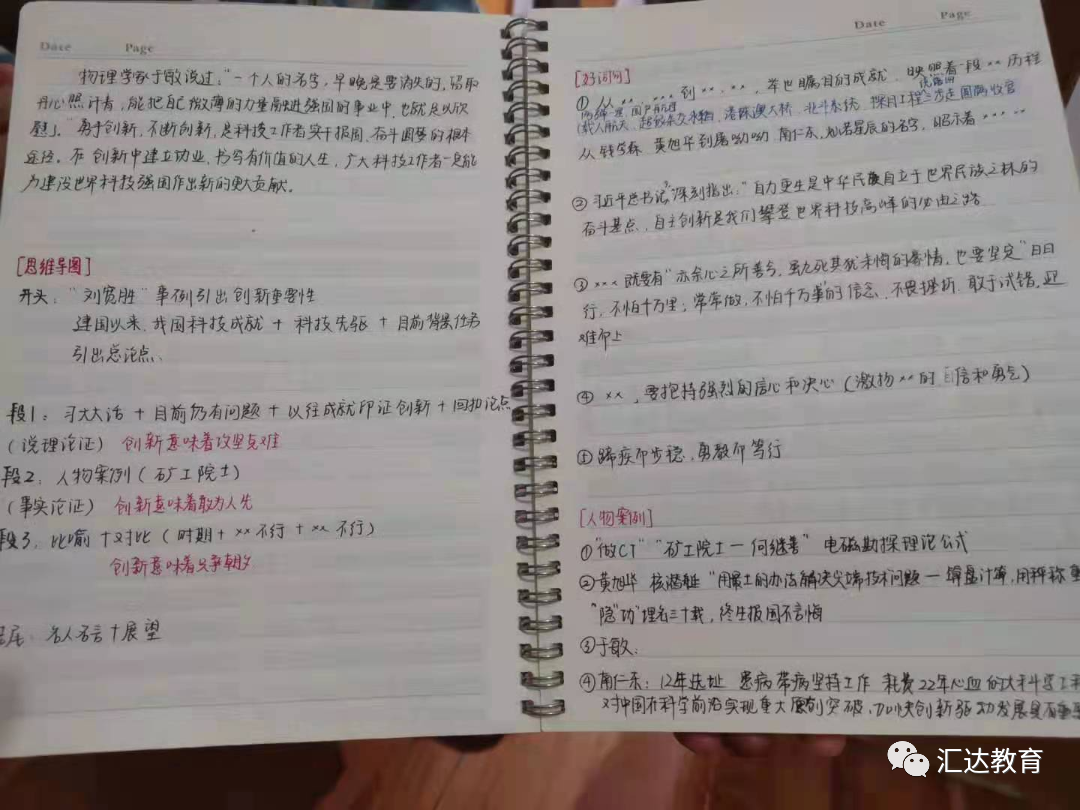 Date Page
物理学家于敏说过:"一个人的名字,早晚是要消失的,留取
丹心照汗青,能把自己微薄的力量融进强国的事业中,也就足以欣
慰了。"勇于创新,不断创新,是科技工作者实干报国、奋斗圆梦的根本
途径。在创新中建立功业、书写有价值的人生,广大科技工作者一定能
为建设世界科技强国作出新的更大贡献。
[思维导图]
开头:"刘宽胜"事例引出创新重要性
建国以来,我国科技成就+科技先驱+目前背景任务
引出总论点、
段1:习大大话+目前仍有问题+以往成就印证创新+回扣论点
(说理论证) 创新意味着攻坚克难
段2:人物案例(矿工院士)
(事实论证) 创新意味着敢为人先
段3:比喻+对比(时期+××不行+××不行)
创新意味着只争朝夕
结尾:名人名言+展望
Date Page
[好词句]
①从××,…,××到××,…,举世瞩目的成就,映照着一段××历程
载人航天、超级杂交水稻、港珠澳大桥、北斗系统、探月工程三步走圆满收官
从钱学森 黄旭华到屠呦呦 南仁东,灿若星辰的名字,昭示着……
②习近平总书记"深刻指出:"自力更生是中华民族自立于世界民族之林的
奋斗基点,自主创新是我们攀登世界科技高峰的必由之路
③×××既要有"亦余心之所善兮,虽九死其犹未悔的豪情,也要坚定"日日
行,不怕千万里,常常做,不怕千万事"的信念,不畏挫折,敢于试错,迎
难而上
④××,要把持强烈的信心和决心(激扬××的自信和勇气)
⑤蹄疾而步稳,勇毅而笃行
[人物案例]
①"做CT""矿工院士—何继善" 电磁勘探理论公式
②黄旭华 核潜艇"用最土的办法解决尖端技术问题—算盘计算,用秤称重
"隐"功"埋名三十载,终生报国不言悔
③于敏:
④南仁东:12年选址 患病带病坚持工作 耗费22年心血的大科学工程
对中国在科学前沿实现重大原创突破,加快创新驱动发展具有重要
汇达教育